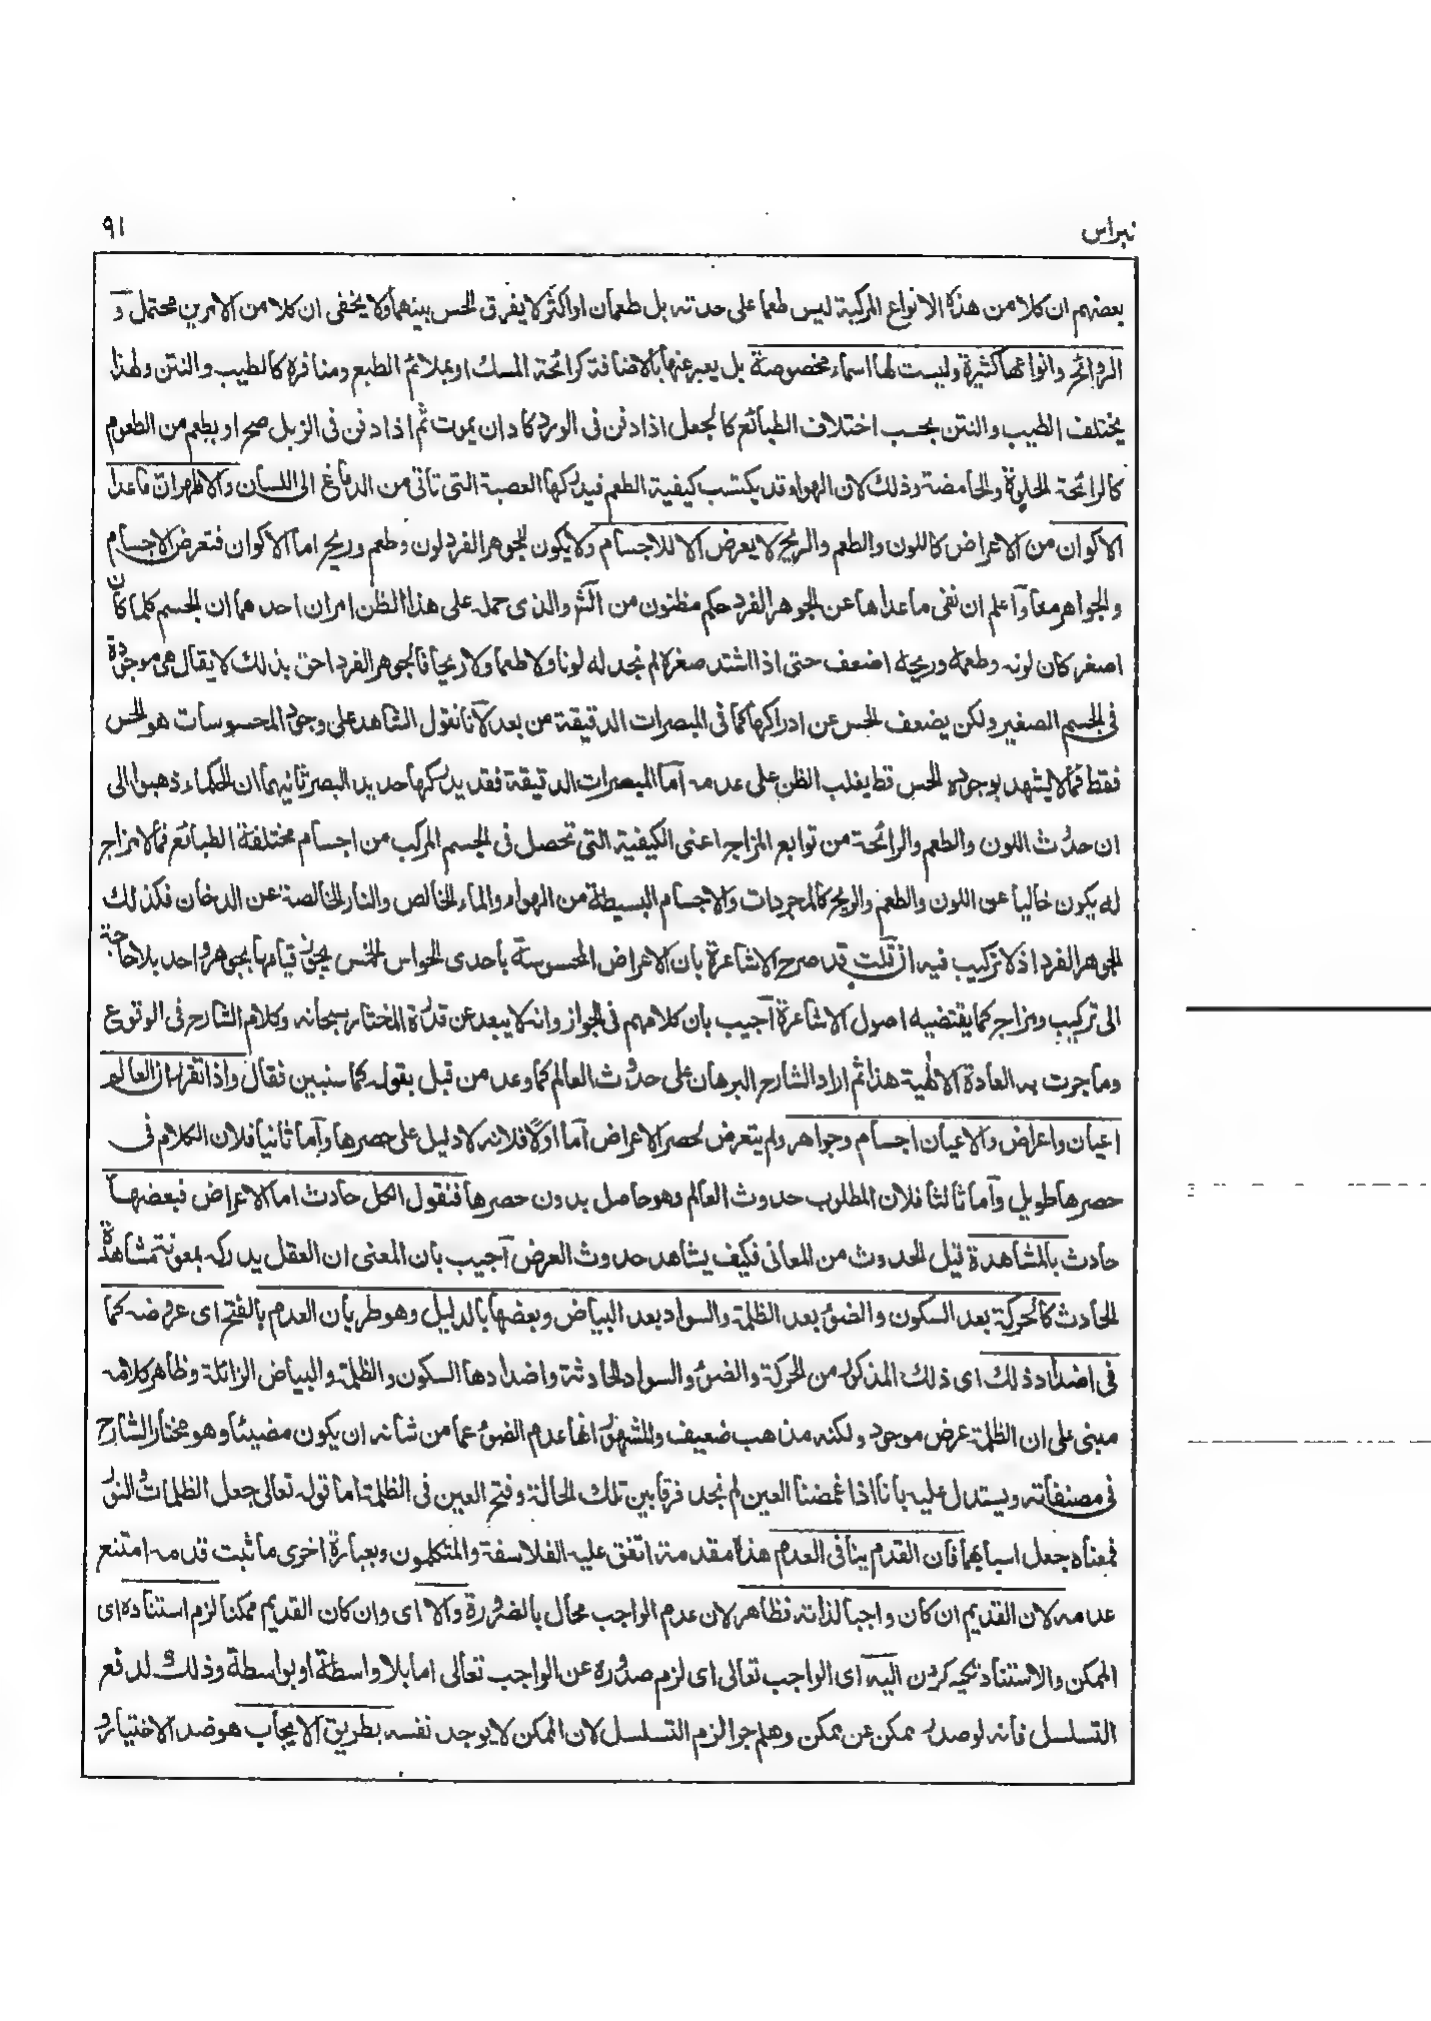 نبراس ٩١
بعضهم ان كلا من هذه الانواع المركبة ليس طعما على حدته بل طعمان او اكثر لا يفرق الحس بينهما ولا يخفى ان كلا من الامرين محتمل و
الروائح وانواعها كثيرة وليست لها اسماء مخصوصة بل يعبر عنها بالاضافة كرائحة المسك او بملائم الطبع ومنافره كالطيب والنتن ولهذا
يختلف الطيب والنتن بحسب اختلاف الطبائع كالجعل اذا دفن فى الورد كاد ان يموت ثم اذا دفن فى الزبل صح او بطعم من الطعوم
كالرائحة الحلوة والحامضة وذلك لان الهواء قد يكتسب كيفية الطعم فيدركها العصبة التى تاتى من الدماغ الى اللسان والاظهر ان ماعدا
الاكوان من الاعراض كاللون والطعم والريح لا يعرض الا للاجسام ولا يكون للجوهر الفرد لون وطعم وريح اما الاكوان فتعرض الاجسام
والجواهر معا واعلم ان نفى ماعداها عن الجوهر الفرد حكم مظنون من اكثر والذى حمله على هذا الظن امران احدهما ان الجسم كلما كان
اصغر كان لونه وطعمه وريحه اضعف حتى اذا اشتد صغره لم نجد له لونا ولا طعما ولا ريحا فالجوهر الفرد احق بذلك لا يقال هى موجودة
فى الجسم الصغير ولكن يضعف الحس عن ادراكها كما فى المبصرات الدقيقة من بعد لانا نقول الشاهد على وجود المحسوسات هو الحس
فقط فما لا يشهد بوجوده الحس قط يغلب الظن على عدمه اما المبصرات الدقيقة فقد يدركها حديد البصر ثانيهما ان الحكماء ذهبوا الى
ان حدوث اللون والطعم والرائحة من توابع المزاج اعنى الكيفية التى تحصل فى الجسم المركب من اجسام مختلفة الطبائع فما لا مزاج
له يكون خاليا عن اللون والطعم والريح كالمجردات والاجسام البسيطة من الهواء والماء الخالص والنار الخالصة عن الدخان فكذلك
الجوهر الفرد اذ لا تركيب فيه ان قلت قد صرح الاشاعرة بان الاعراض المحسوسة باحدى الحواس الخمس يجوز قيامها بجوهر واحد بلا حاجة
الى تركيب ومزاج كما يقتضيه اصول الاشاعرة اجيب بان كلامهم فى الجواز وانه لا يبعد عن قدرة المختار سبحانه وكلام الشارح فى الوقوع
وما جرت به العادة الالهية هذا ثم اراد الشارح البرهان على حدوث العالم كما وعد من قبل بقوله كما سنبين فقال واذا تقرر ان العالم
اعيان واعراض والاعيان اجسام وجواهر ولم يتعرض لحصر الاعراض اما اولا فلانه لا دليل على حصرها واما ثانيا فلان الكلام فى
حصرها طويل واما ثالثا فلان المطلوب حدوث العالم وهو حاصل بدون حصرها فنقول الكل حادث اما الاعراض فبعضها
حادث بالمشاهدة قيل الحدوث من المعانى فكيف يشاهد حدوث العرض اجيب بان المعنى ان العقل يدركه بمعونة مشاهدة
الحادث كالحركة بعد السكون والضوء بعد الظلمة والسواد بعد البياض وبعضها بالدليل وهو طريان العدم بالفتح اى عروضه كما
فى اضداد ذلك اى ذلك المذكور من الحركة والضوء والسواد الحادثة واضدادها السكون والظلمة والبياض الزائلة وظاهر كلامه
مبنى على ان الظلمة عرض موجود ولكنه مذهب ضعيف والمشهور انها عدم الضوء عما من شانه ان يكون مضيئا وهو مختار الشارح
فى مصنفاته ويستدل عليه بانا اذا غمضنا العين لم نجد فرقا بين تلك الحالة وفتح العين فى الظلمة اما قوله تعالى جعل الظلمات والنور
فمعناه جعل اسبابهما فان القدم ينافى العدم هذا مقدمة اتفق عليه الفلاسفة والمتكلمون وبعبارة اخرى ما ثبت قدمه امتنع
عدمه لان القديم ان كان واجبا لذاته فظاهر لان عدم الواجب محال بالضرورة والا اى وان كان القديم ممكنا لزم استناده اى
الممكن والاستناد تكيه كردن اليه اى الواجب تعالى اى لزم صدوره عن الواجب تعالى اما بلا واسطة او بواسطة وذلك لدفع
التسلسل فانه لو صدر ممكن عن ممكن وهلم جرا لزم التسلسل لان الممكن لا يوجد نفسه بطريق الايجاب هو ضد الاختيار و